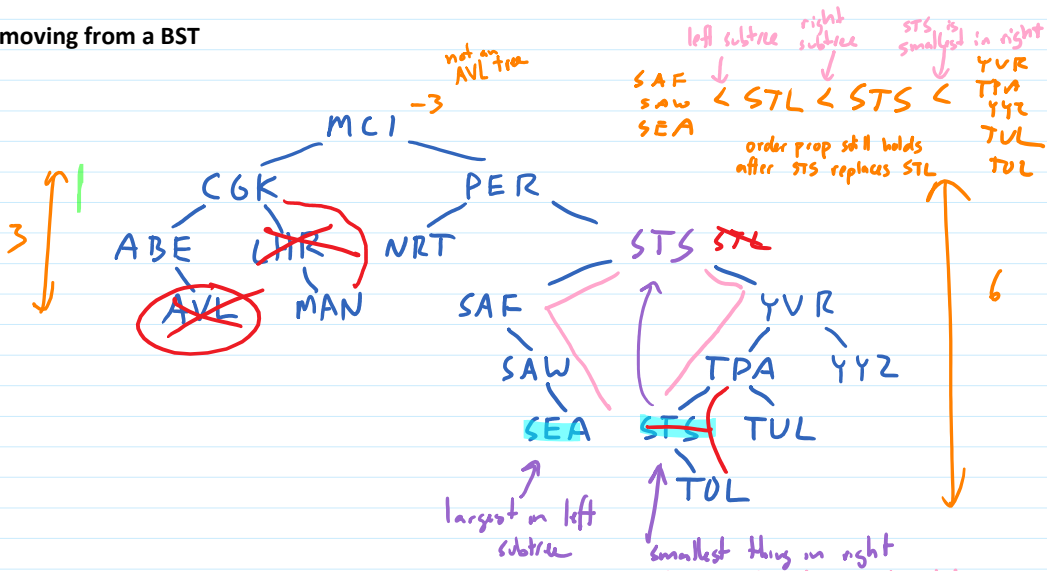 moving from a BST
not an
AVL tree
-3
left subtree
right
subtree
STS is
smallest in right
SAF
SAW
SEA
< STL < STS <
YVR
TPA
YYZ
TUL
TOL
order prop still holds
after STS replaces STL
MCI
CGK
PER
3
ABE
LHR
NRT
STS STL
6
AVL
MAN
SAF
YVR
SAW
TPA
YYZ
SEA
STS
TUL
TOL
largest in left
subtree
smallest thing in right